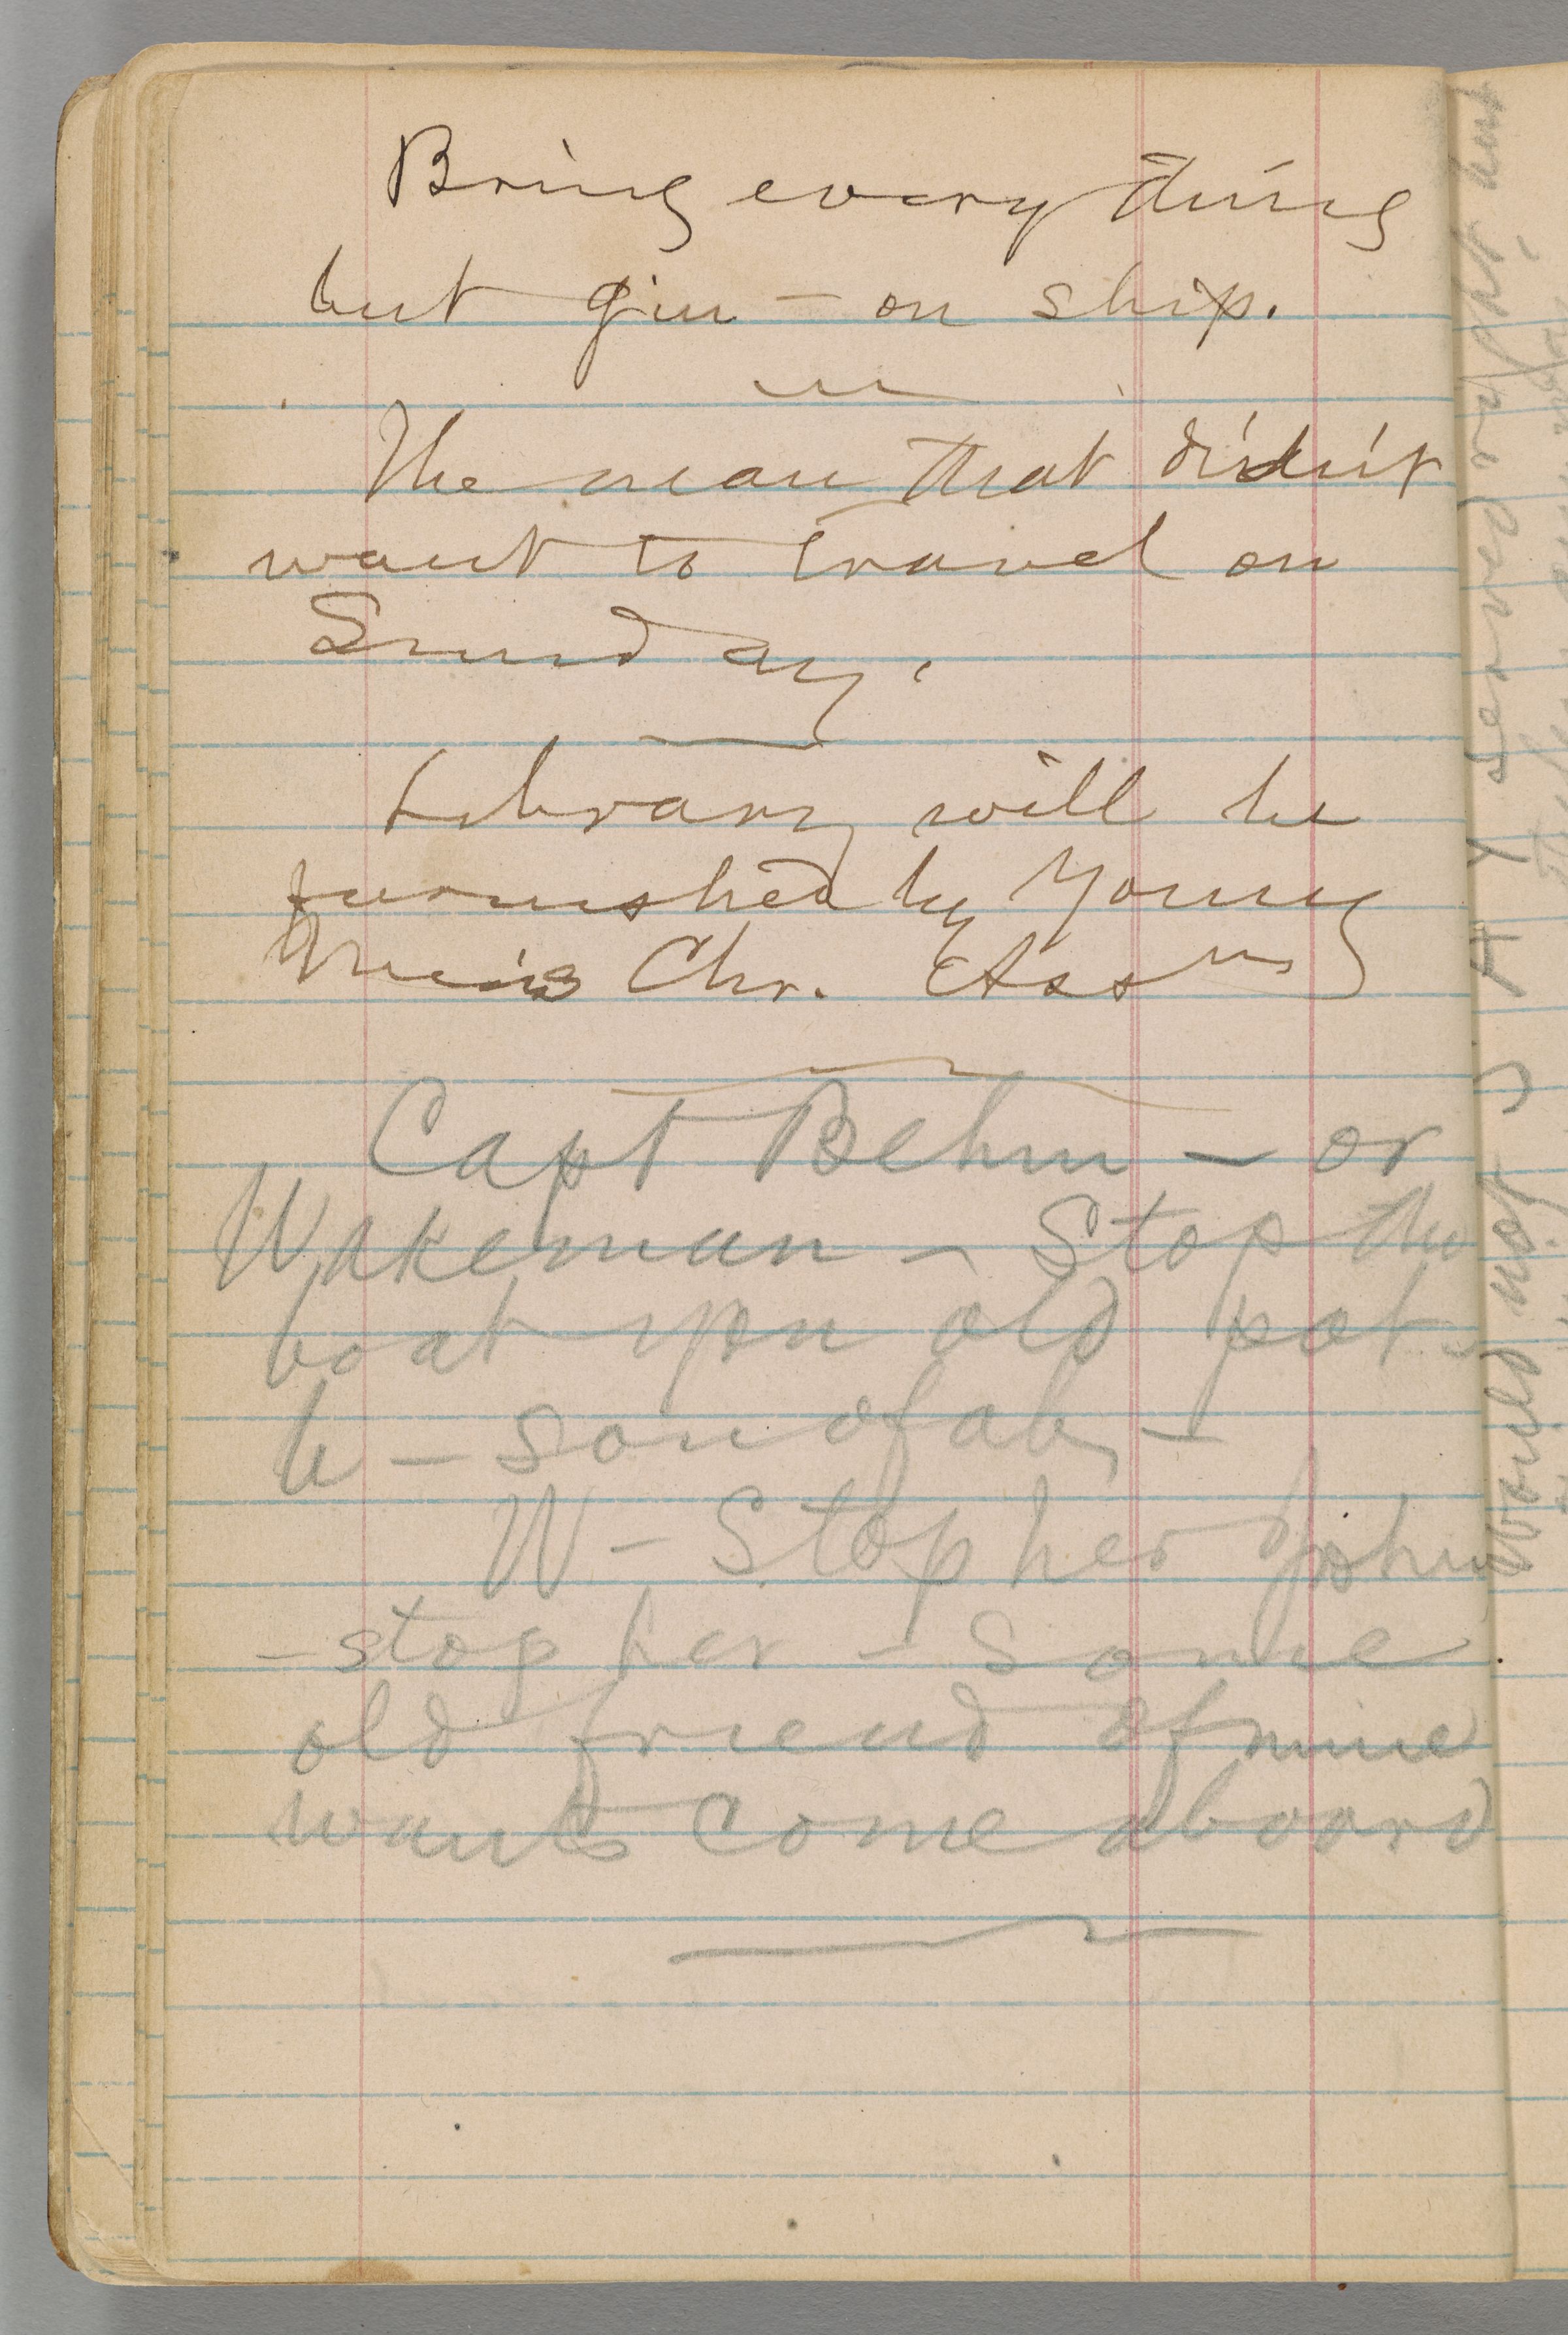 Bring everything
but gin — on ship.
The man that didn't
want to travel on
Sunday.
Library will be
furnished by Young
Men's Chr. Assn
Capt Behm — or
Wakeman — Stop the
boat you old pot-
b — son of a b —
W — Stop her John
— stop her — some
old friend of mine
wants come aboard
would not S A Y served right, but